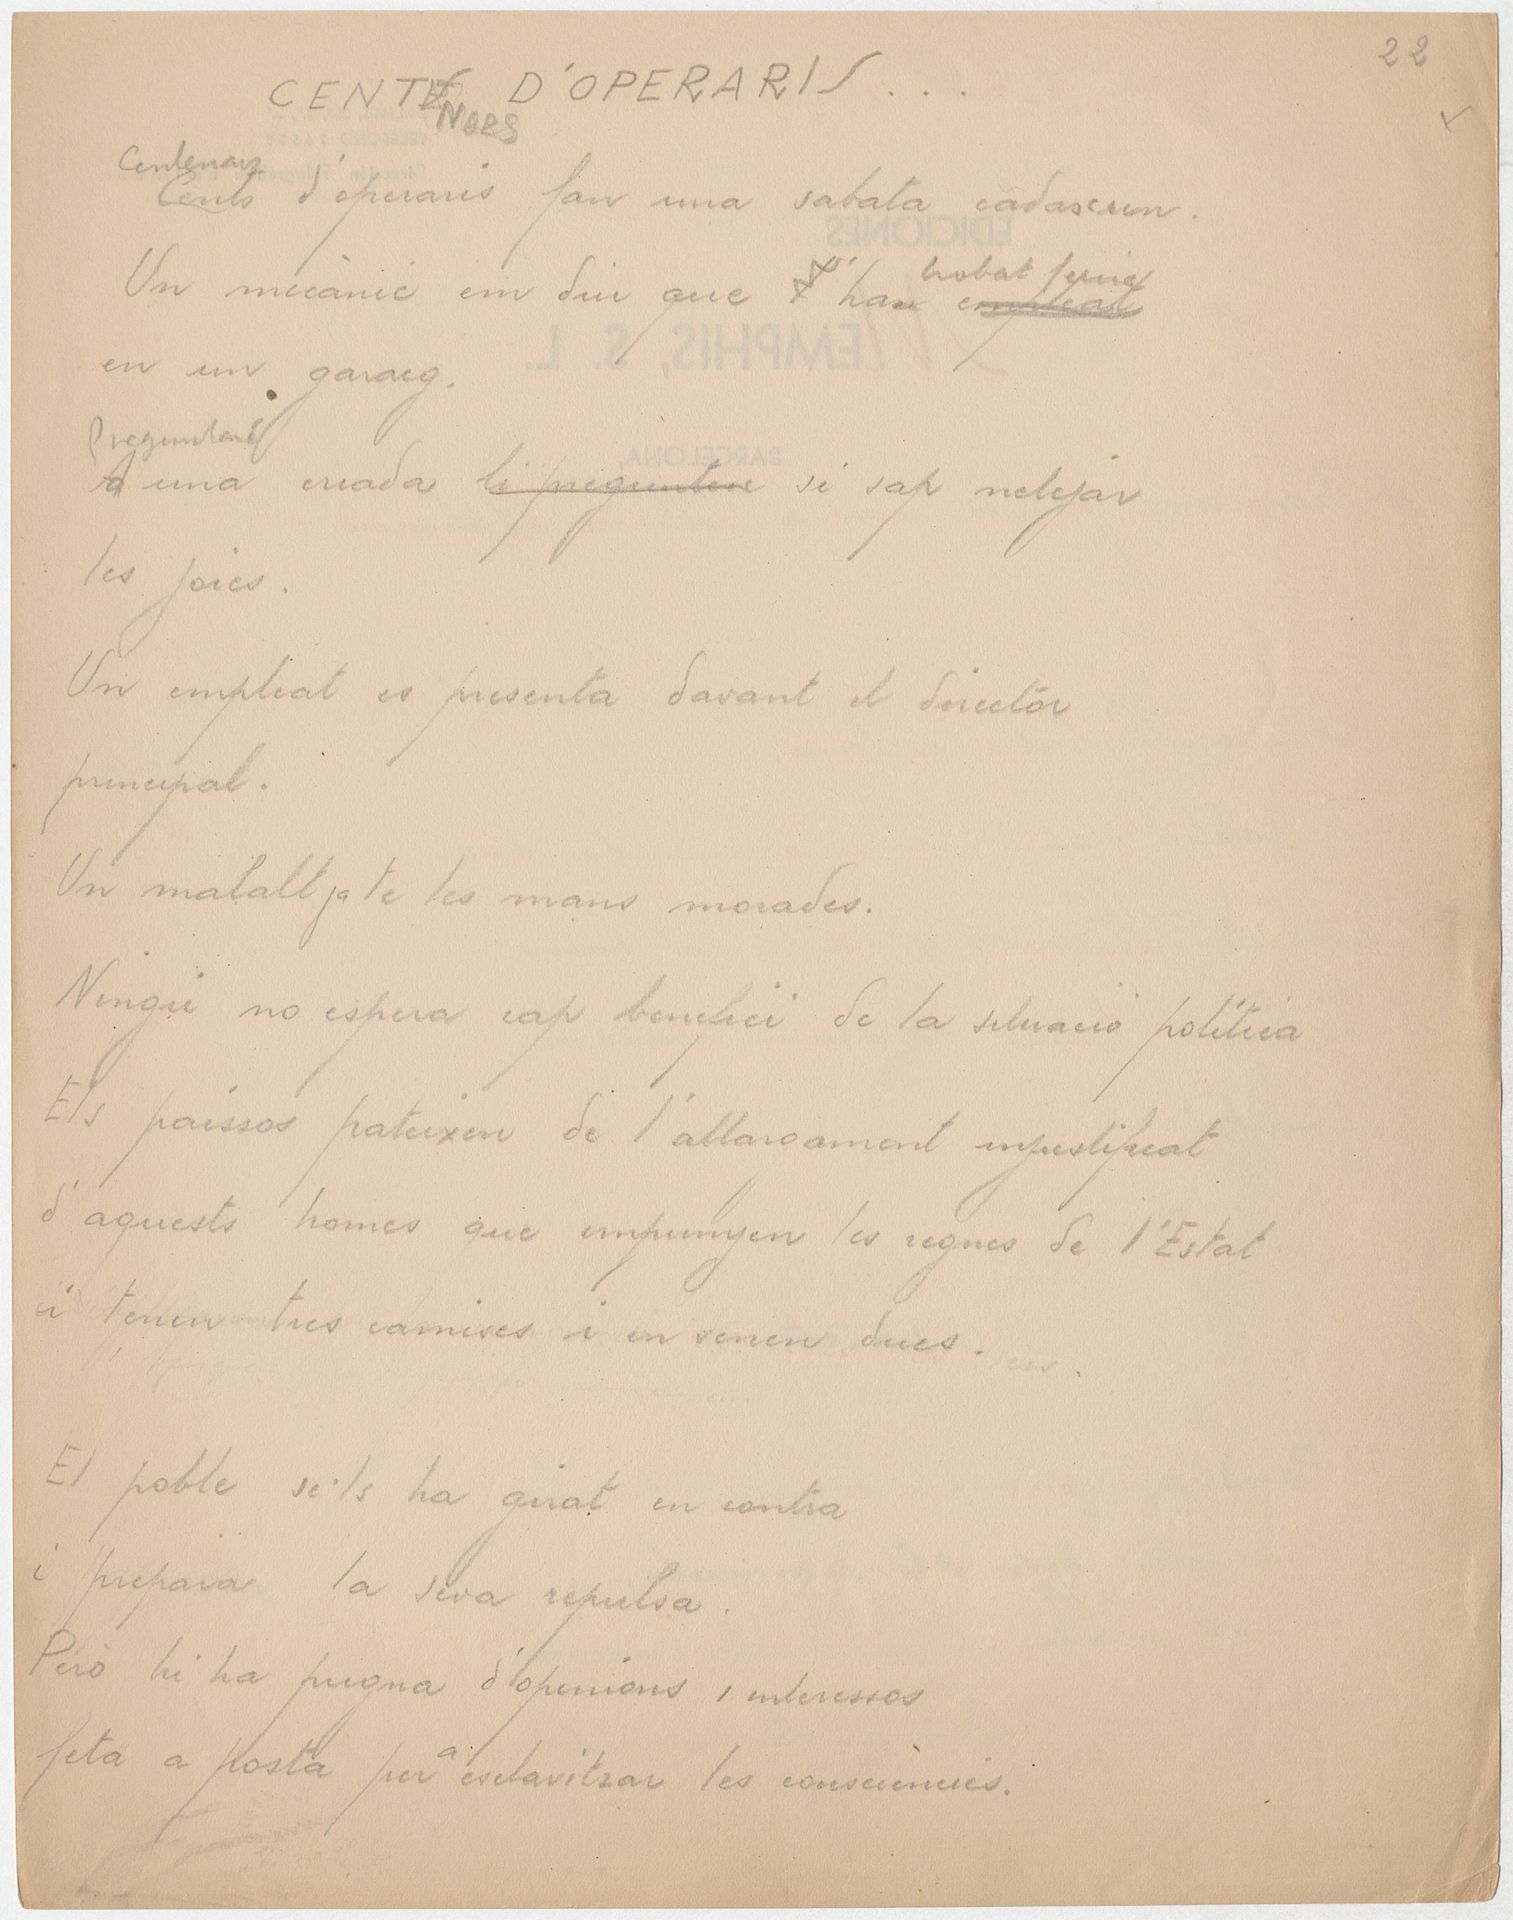 22
CENTENARS D'OPERARIS...
Centenars
Cents d'operaris fan una sabata cadascun.
trobat feina
Un mecànic em diu que ha empleat
en un garaeg.
Preguntaré
A una criada li preguntaré si sap netejar
les joies.
Un empleat es presenta davant el director
principal.
Un malalt ja te les mans morades.
Ningú no espera cap benefici de la situació política
Els països pateixen de l'allargament injustificat
d'aquests homes que empunyen les regnes de l'Estat
i tenen tres camises i en venen dues.
El poble se'ls ha girat en contra
i prepara la seva repulsa.
Però hi ha pugna d'opinions i interessos
feta a posta per a esclavitzar les consciències.